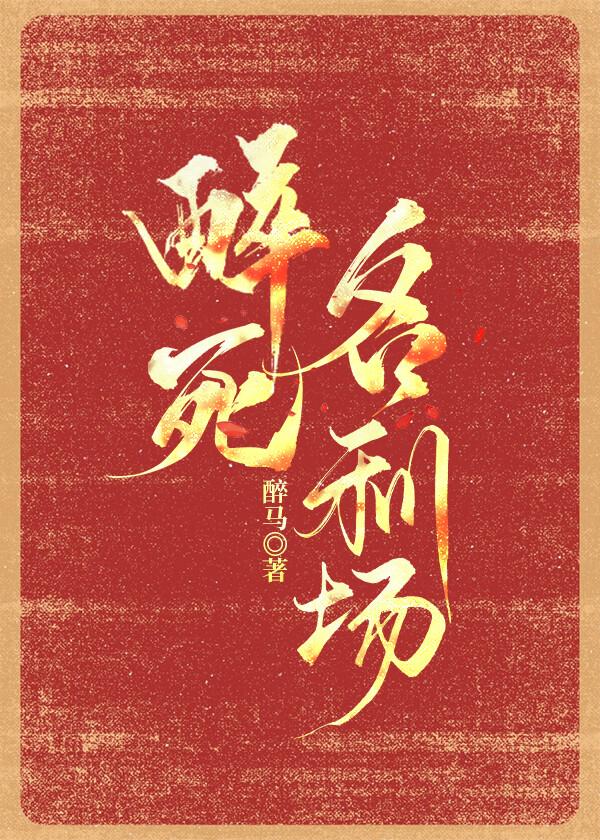 醉死
名利场
醉马◎著